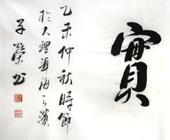 寶
乙未仲秋時節
於大理洱海之濱
子榮书